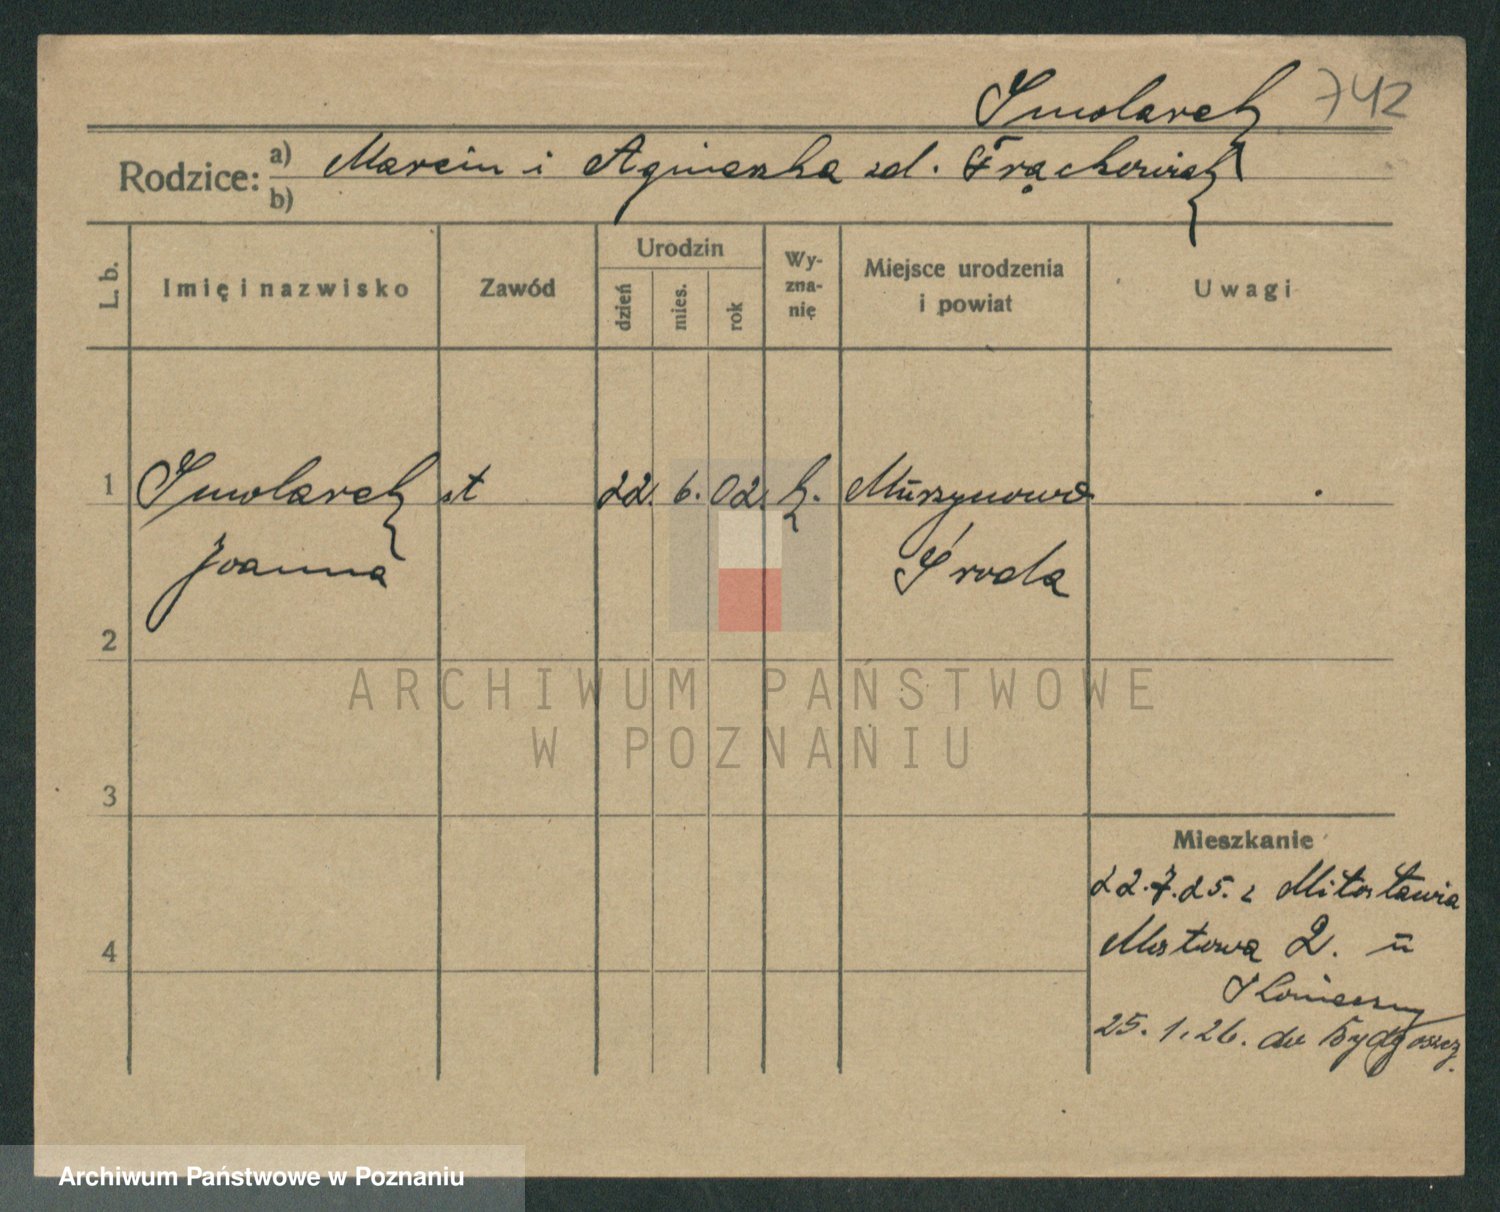 Smolarek 742
Rodzice: a) Marcin i Agnieszka zd. Frąckowiak
b)
L. b. Imię i nazwisko Zawód Urodzin dzień mies. rok Wyzna-nię Miejsce urodzenia i powiat Uwagi
1 Smolarek st 22. 6. 02. k. Murzynowo
Joanna Środa
2
3
4
Mieszkanie
22.7.25. z Miłosławia
Mostowa 2. u
25.1.26. do Bydgoszcz.
ARCHIWUM PAŃSTWOWE
W POZNANIU
Archiwum Państwowe w Poznaniu